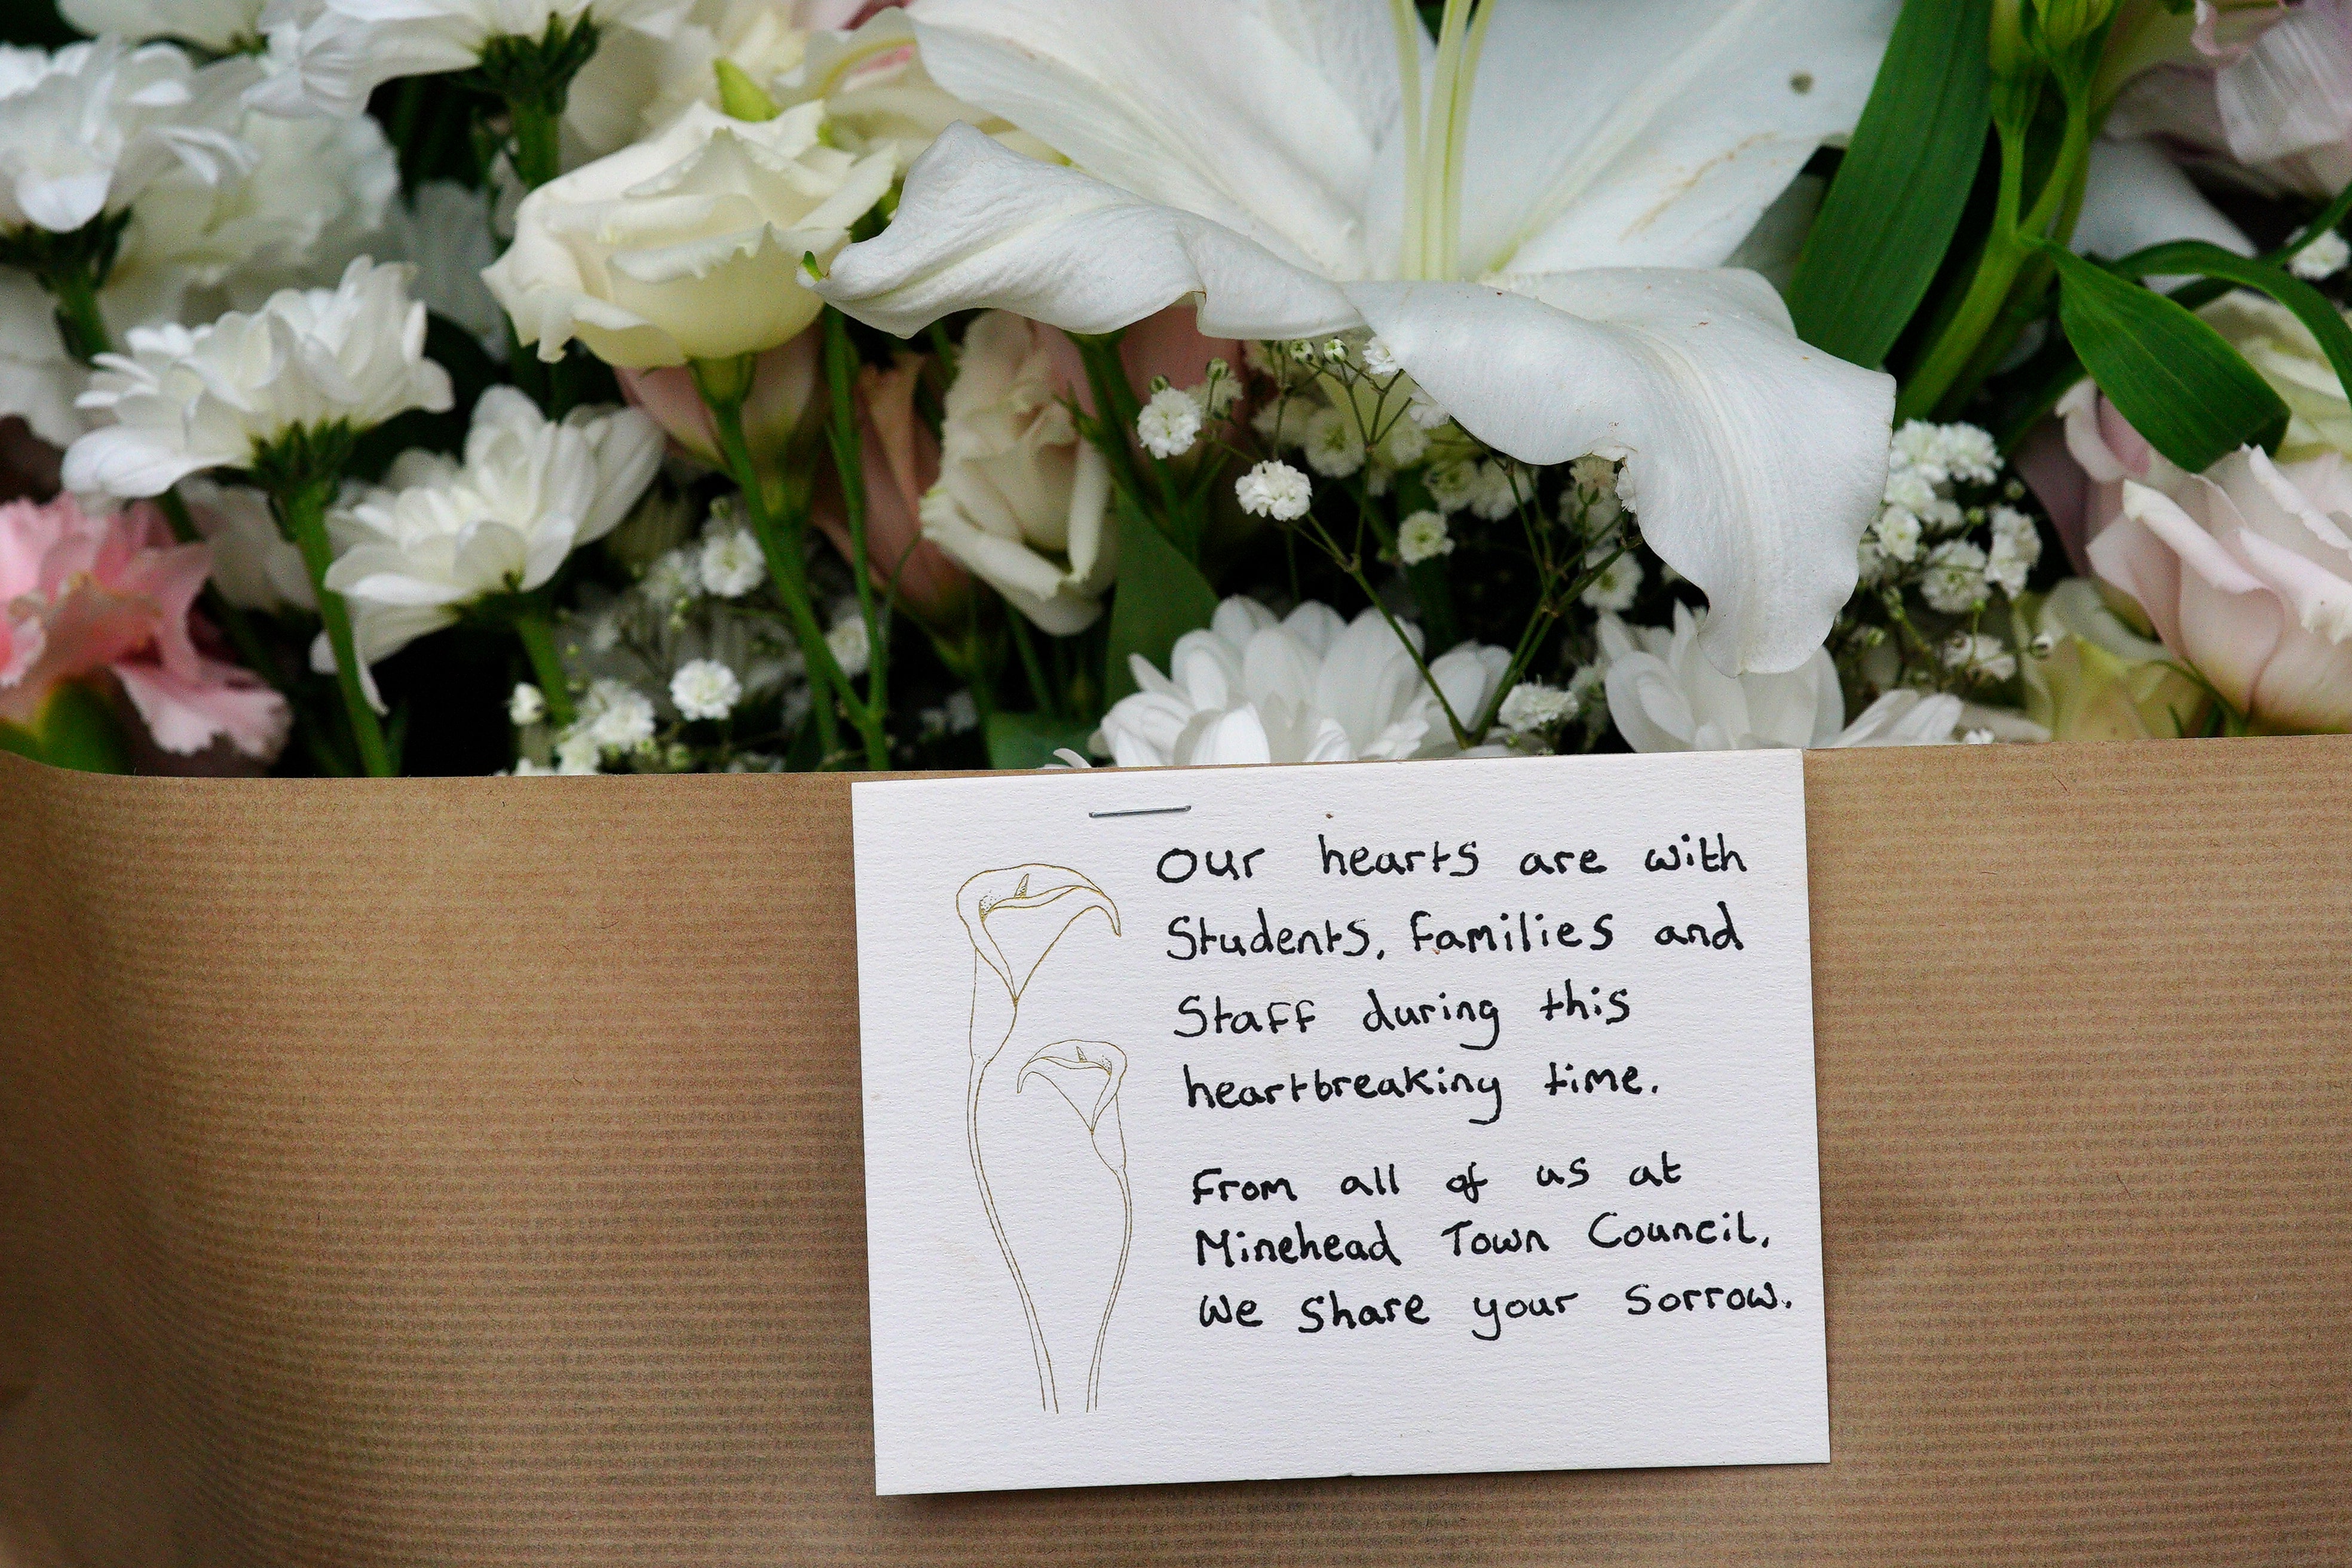 Our hearts are with
Students, families and
Staff during this
heartbreaking time.
From all of us at
Minehead Town Council,
We share your sorrow.